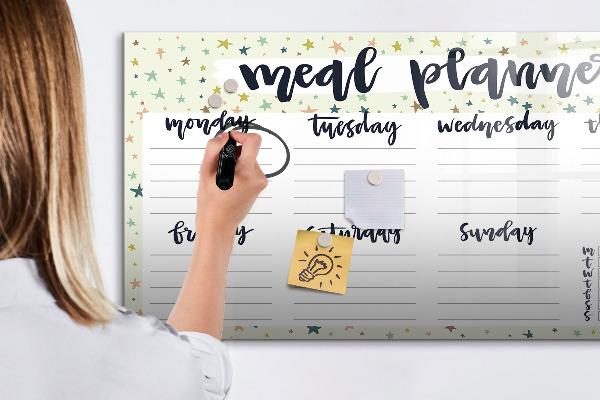 meal planne
monday tuesday wednesday
saturday sunday